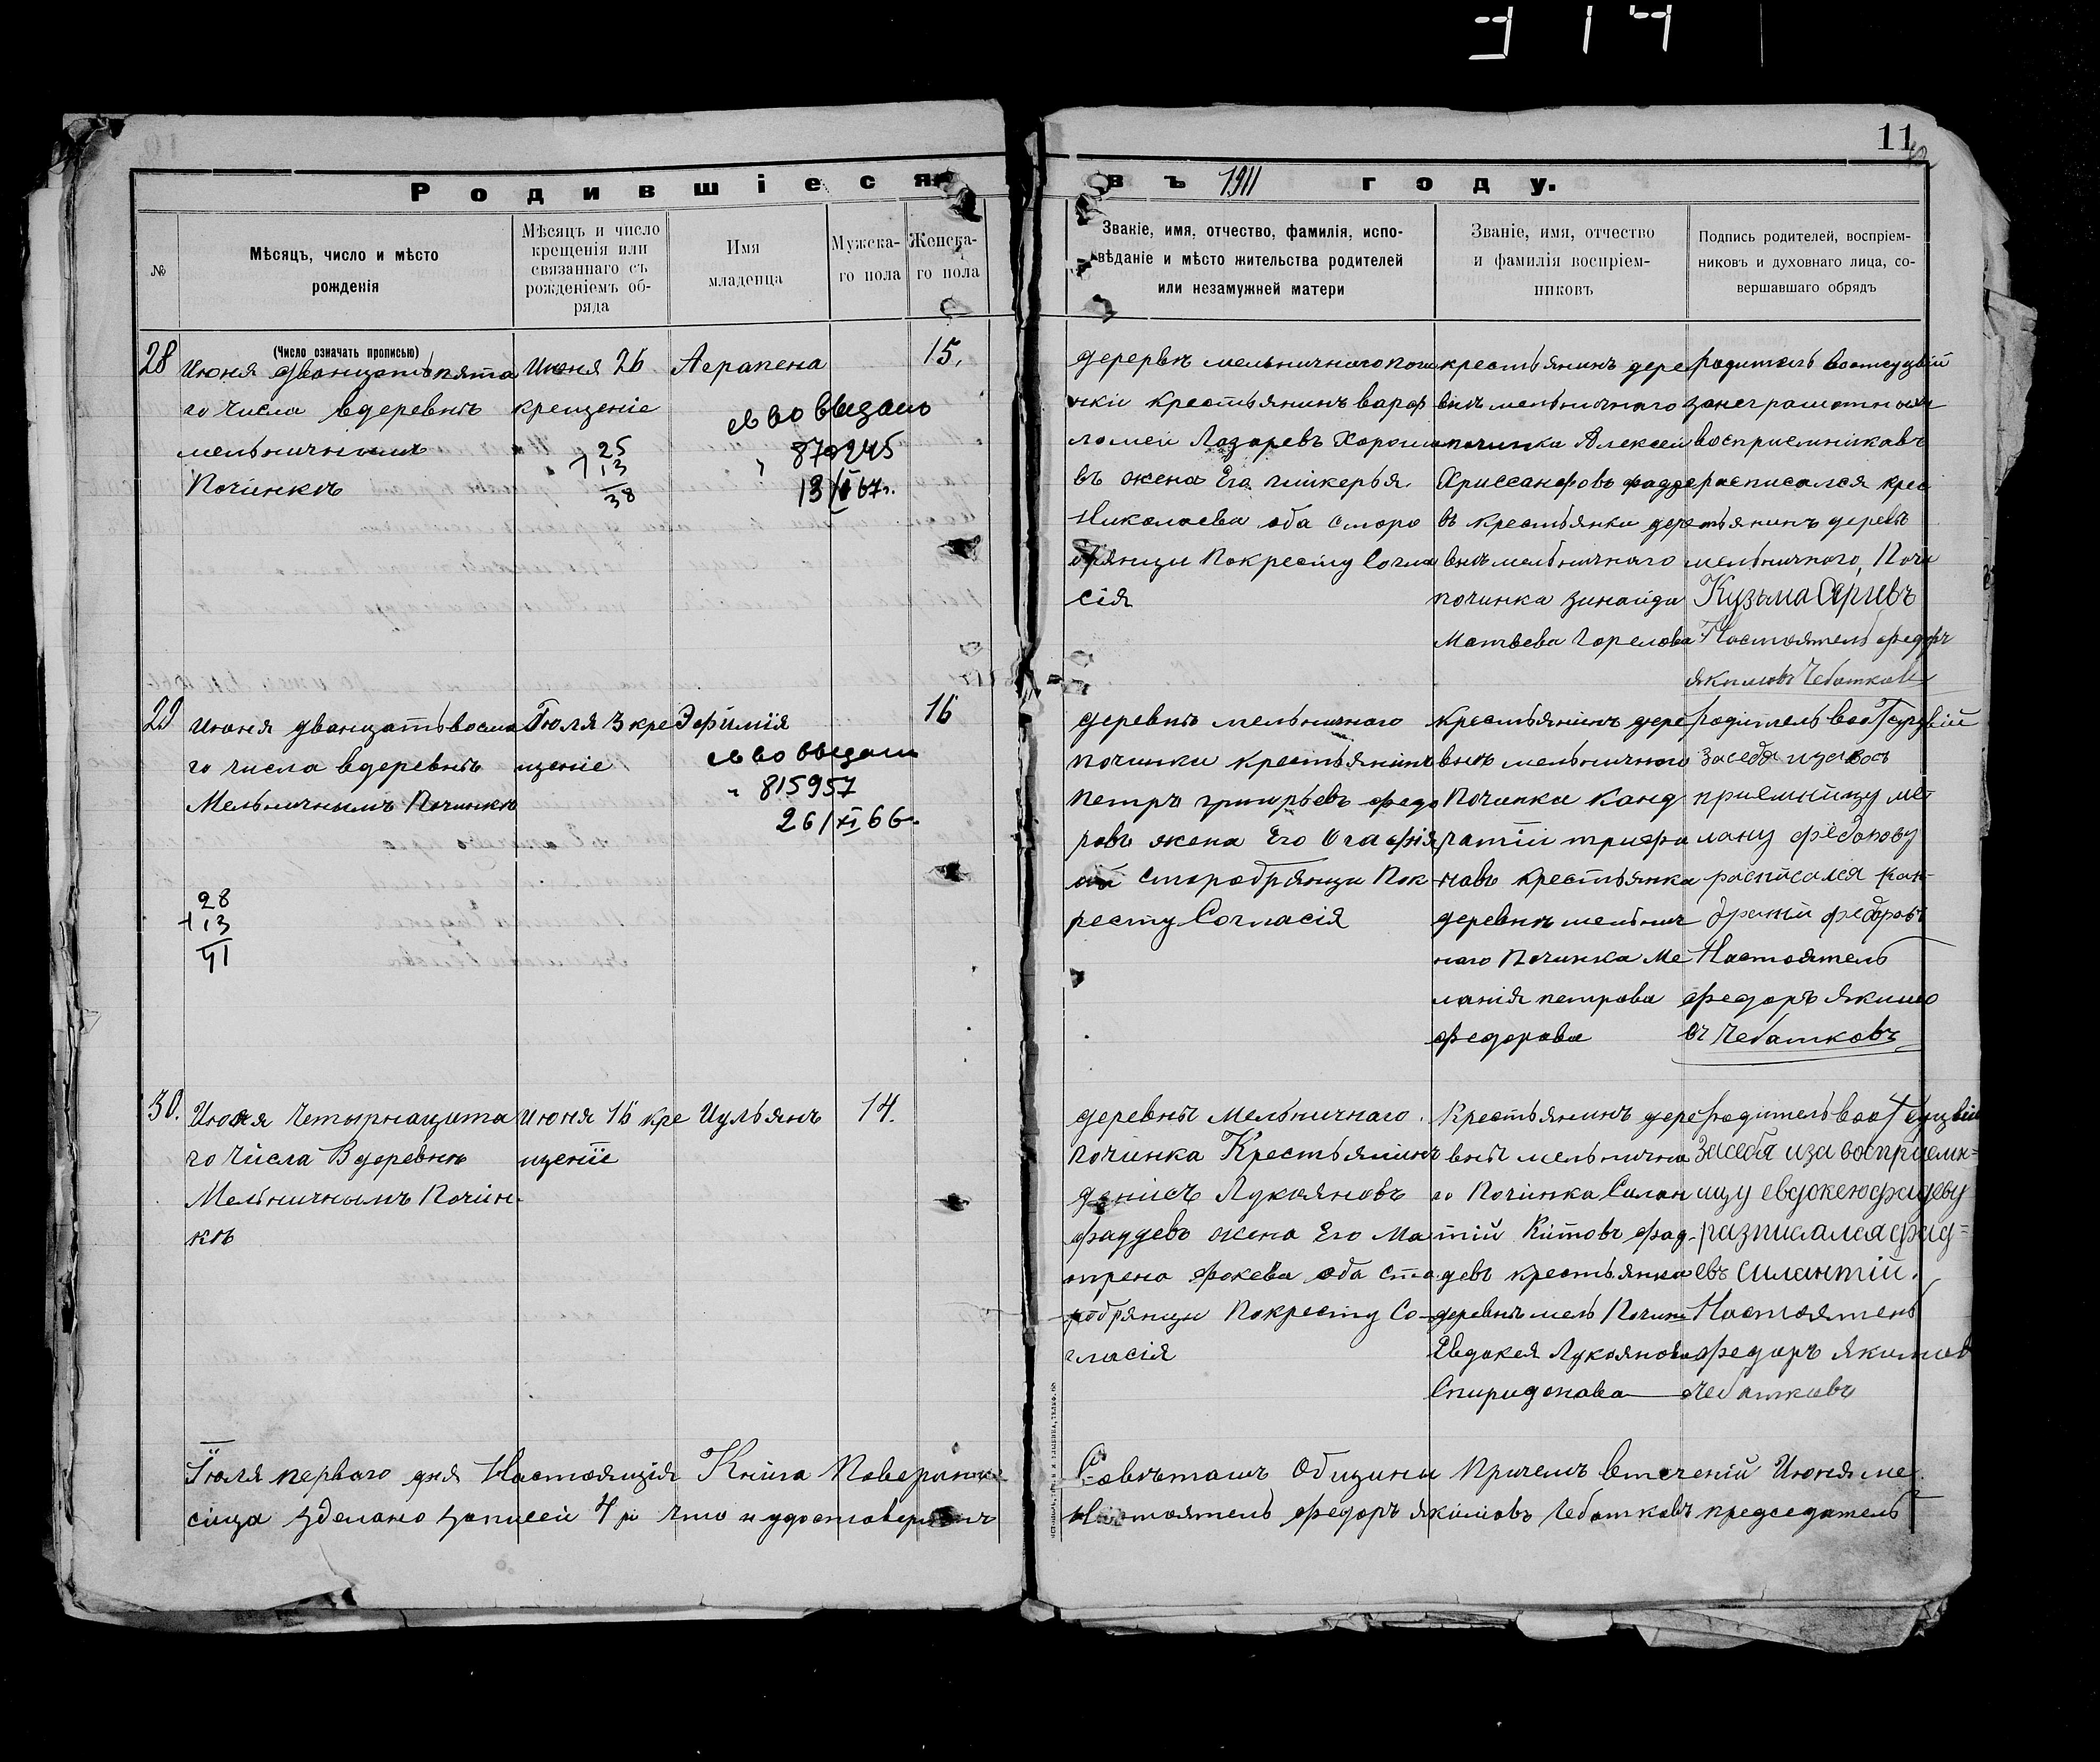 11
Родившіеся
въ 1911 году.
№
Мѣсяцъ, число и мѣсто
рожденія
Мѣсяцъ и число
крещенія или
связаннаго съ
рожденіемъ об-
ряда
Имя
младенца
Мужска-
го пола
Женска-
го пола
Званіе, имя, отчество, фамилія, испо-
вѣданіе и мѣсто жительства родителей
или незамужней матери
Званіе, имя, отчество
и фамилія воспріем-
никовъ
Подпись родителей, воспріем-
никовъ и духовнаго лица, со-
вершавшаго обрядъ
(Число означать прописью)
28
Июня дванцатьпята
го числа вдеревнѣ
мельничнымъ
Починкѣ
Июня 26
крещеніе
25
+13
38
Аграпена
св во выдано
879245
15.
деревнѣ мельничного почи
нки крестьянинъ варф
ломеи Лазаревъ Хороше
въ жена Его гликерья
Николаева оба старо
обрянци Покресту Согла
сія
крестьянинъ дере
внѣ мельничного
починка Алексеи
Хриссанфовъ фадде
въ крестьянки дере
внѣ мельничного
починка зинаида
Матвева Горелова
родитель
занеграмотныхъ
восприемникавъ
расписался крес
тьянинъ деревѣ
мельничного, Почи
Кузьма
Настоятель федоръ
якимовъ Чебатковъ
29
Июня дванцатьвосмо
го числа вдеревнѣ
Мельничнымъ Починки
28
+13
41
Іюля 3 кре
щеніе
Эфимія
св во выдано
815957
26/XI 66г.
16
деревнѣ мельничного
починки крестьянинъ
петръ григорьевъ федо
ровъ жена Его Агафія
Старобрянци Пок
ресту Согласія
крестьянинъ дере
внѣ мельничного
Починка Канд
ратіи трифа
новъ крестьянка
деревнѣ мельнич
наго Починка Ме
ланія петрова
федорова
родитель
засебя изавос
приемницу ме
лану федорову
расписался кан
дратіи федоровъ
Настоятель
федоръ якимо
въ Чебатковъ
30.
Июня Четырнацата
го Числа Вдеревнѣ
Мельничнымъ Почин
кѣ
июня 15 кре
щеніе
Иульянъ
14.
деревнѣ Мельничнаго
починка Крестьянинъ
денисъ Лукояновъ
фаддевъ жена Его Ма
трена фокева оба ста
робрянци Покресту Со-
гласія
Крестьянинъ дере
внѣ мельнична
го Починка Силан
тій Китовъ фад-
девъ крестьянка
деревнѣ мель Почин
Евдокея Лукоянова
Спиридонова
родитель
Засебя иза восприемн=
ицу евдокею
разписался фад=
евъ силантій.
Настоятель
федоръ якимов
Чебатковъ
Іюля перваго дня Настоящія Книга Поверинна Совѣтомъ Общини Причемъ втеченій Июня ме
сяца зделано записей 4 ри что и удостоверяемъ Настоятель федоръ якимовъ Чебатковъ председатель